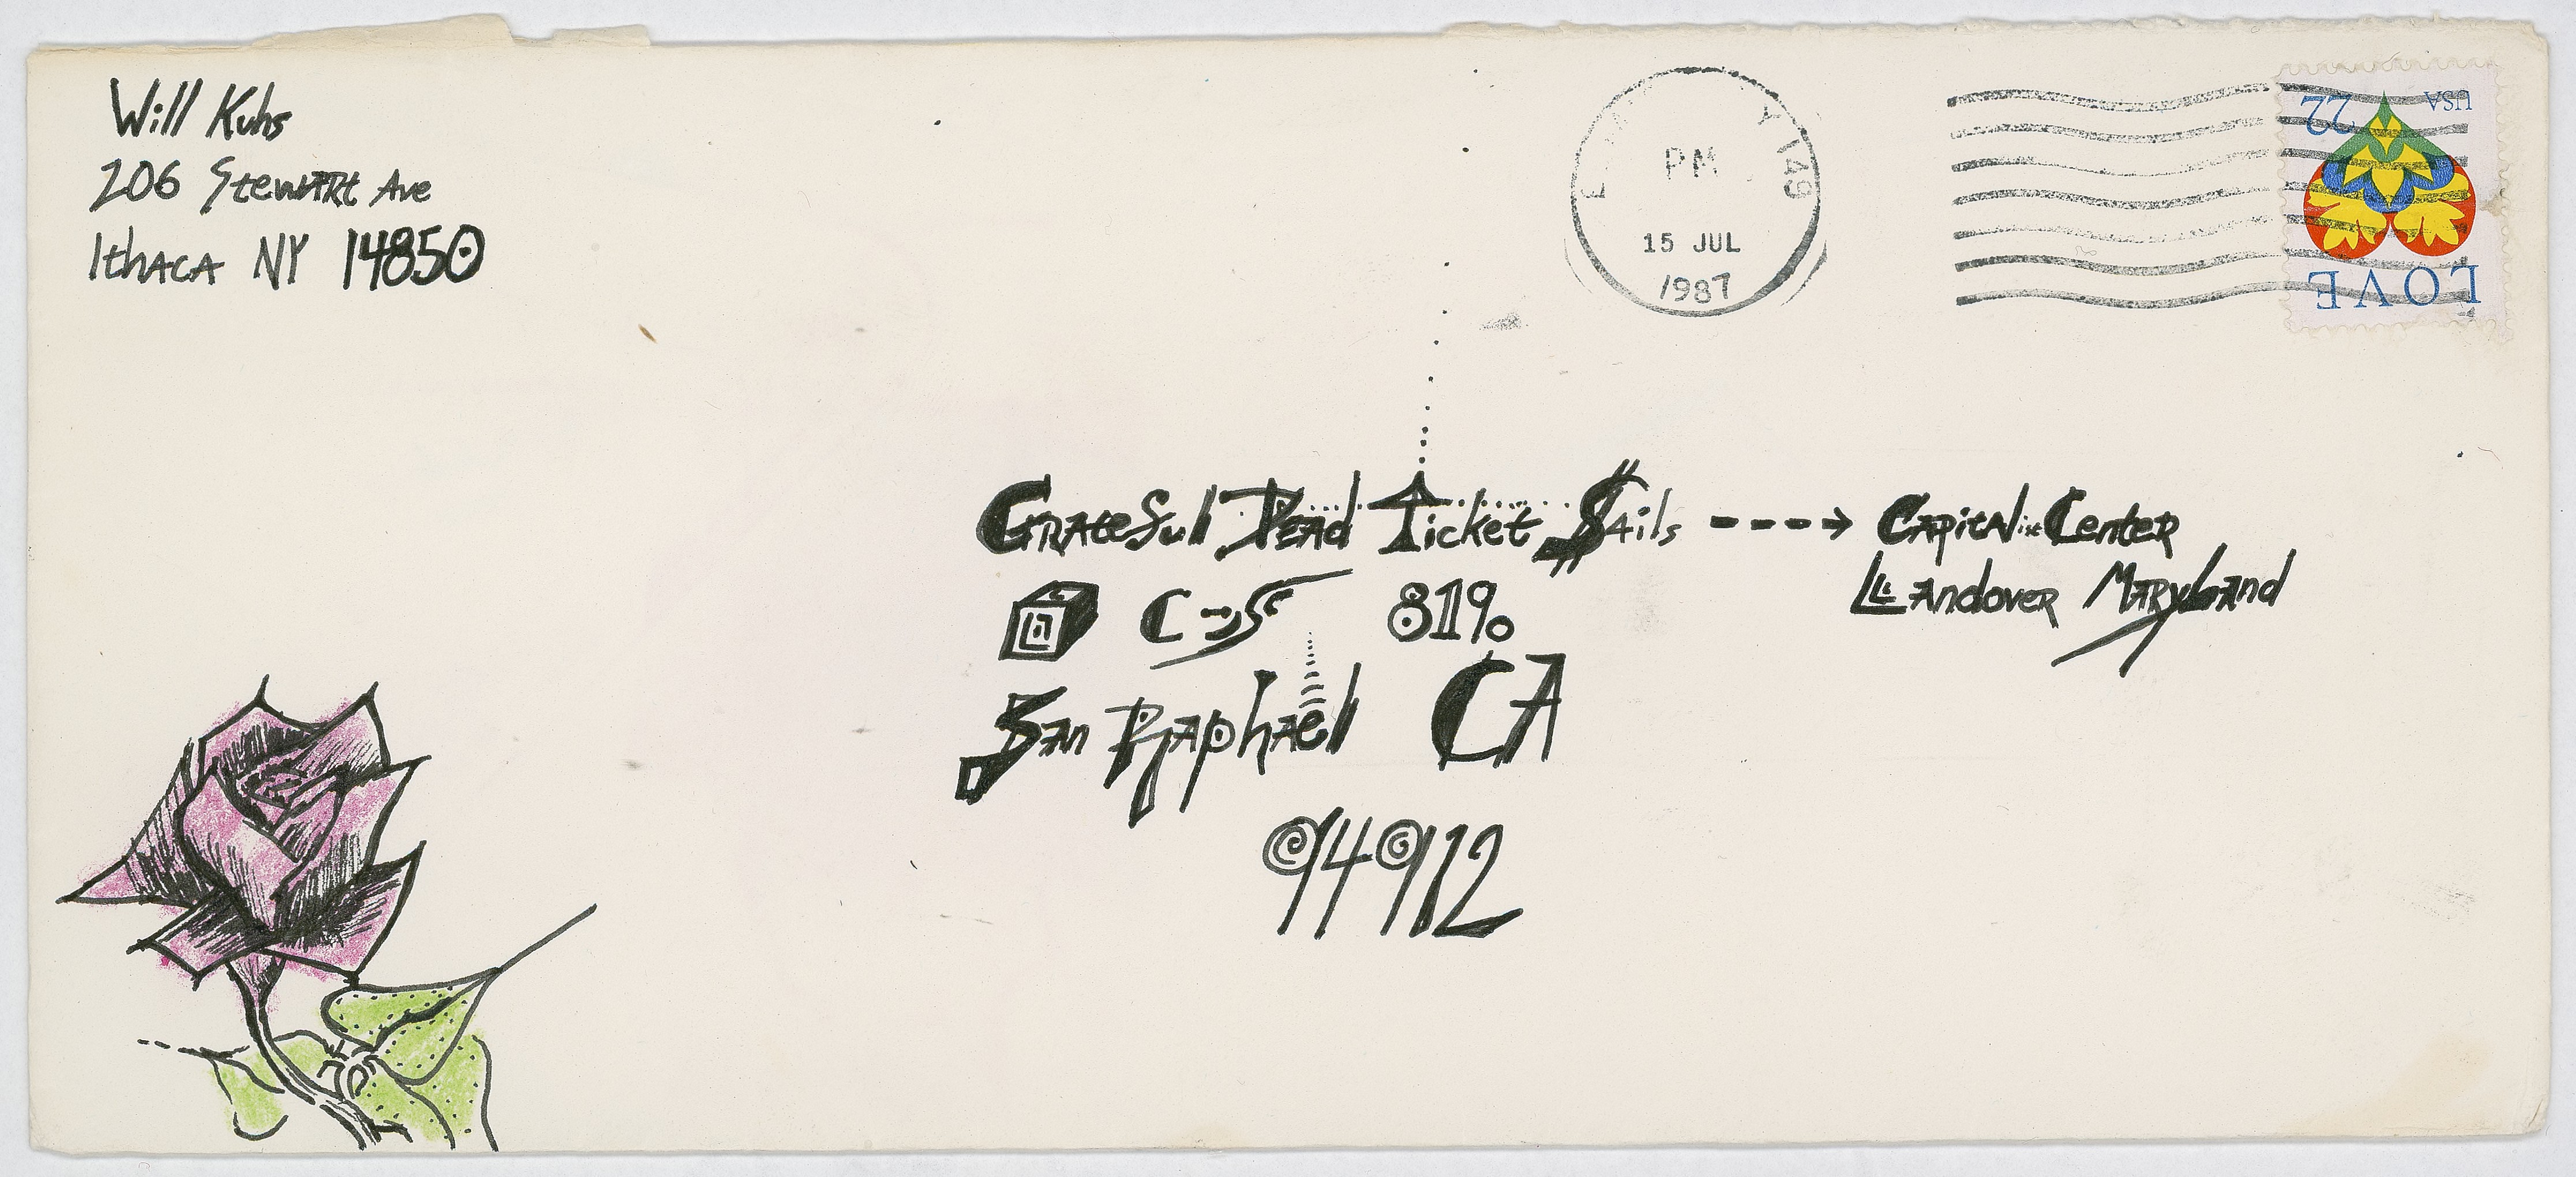 Will Kuhs
206 Stewart Ave
Ithaca NY 14850
PM
15 JUL
1987
22 USA
LOVE
Grateful Dead Ticket $ails ----> Capital Center
Landover Maryland
C-S 81%
San Raphael CA
94912